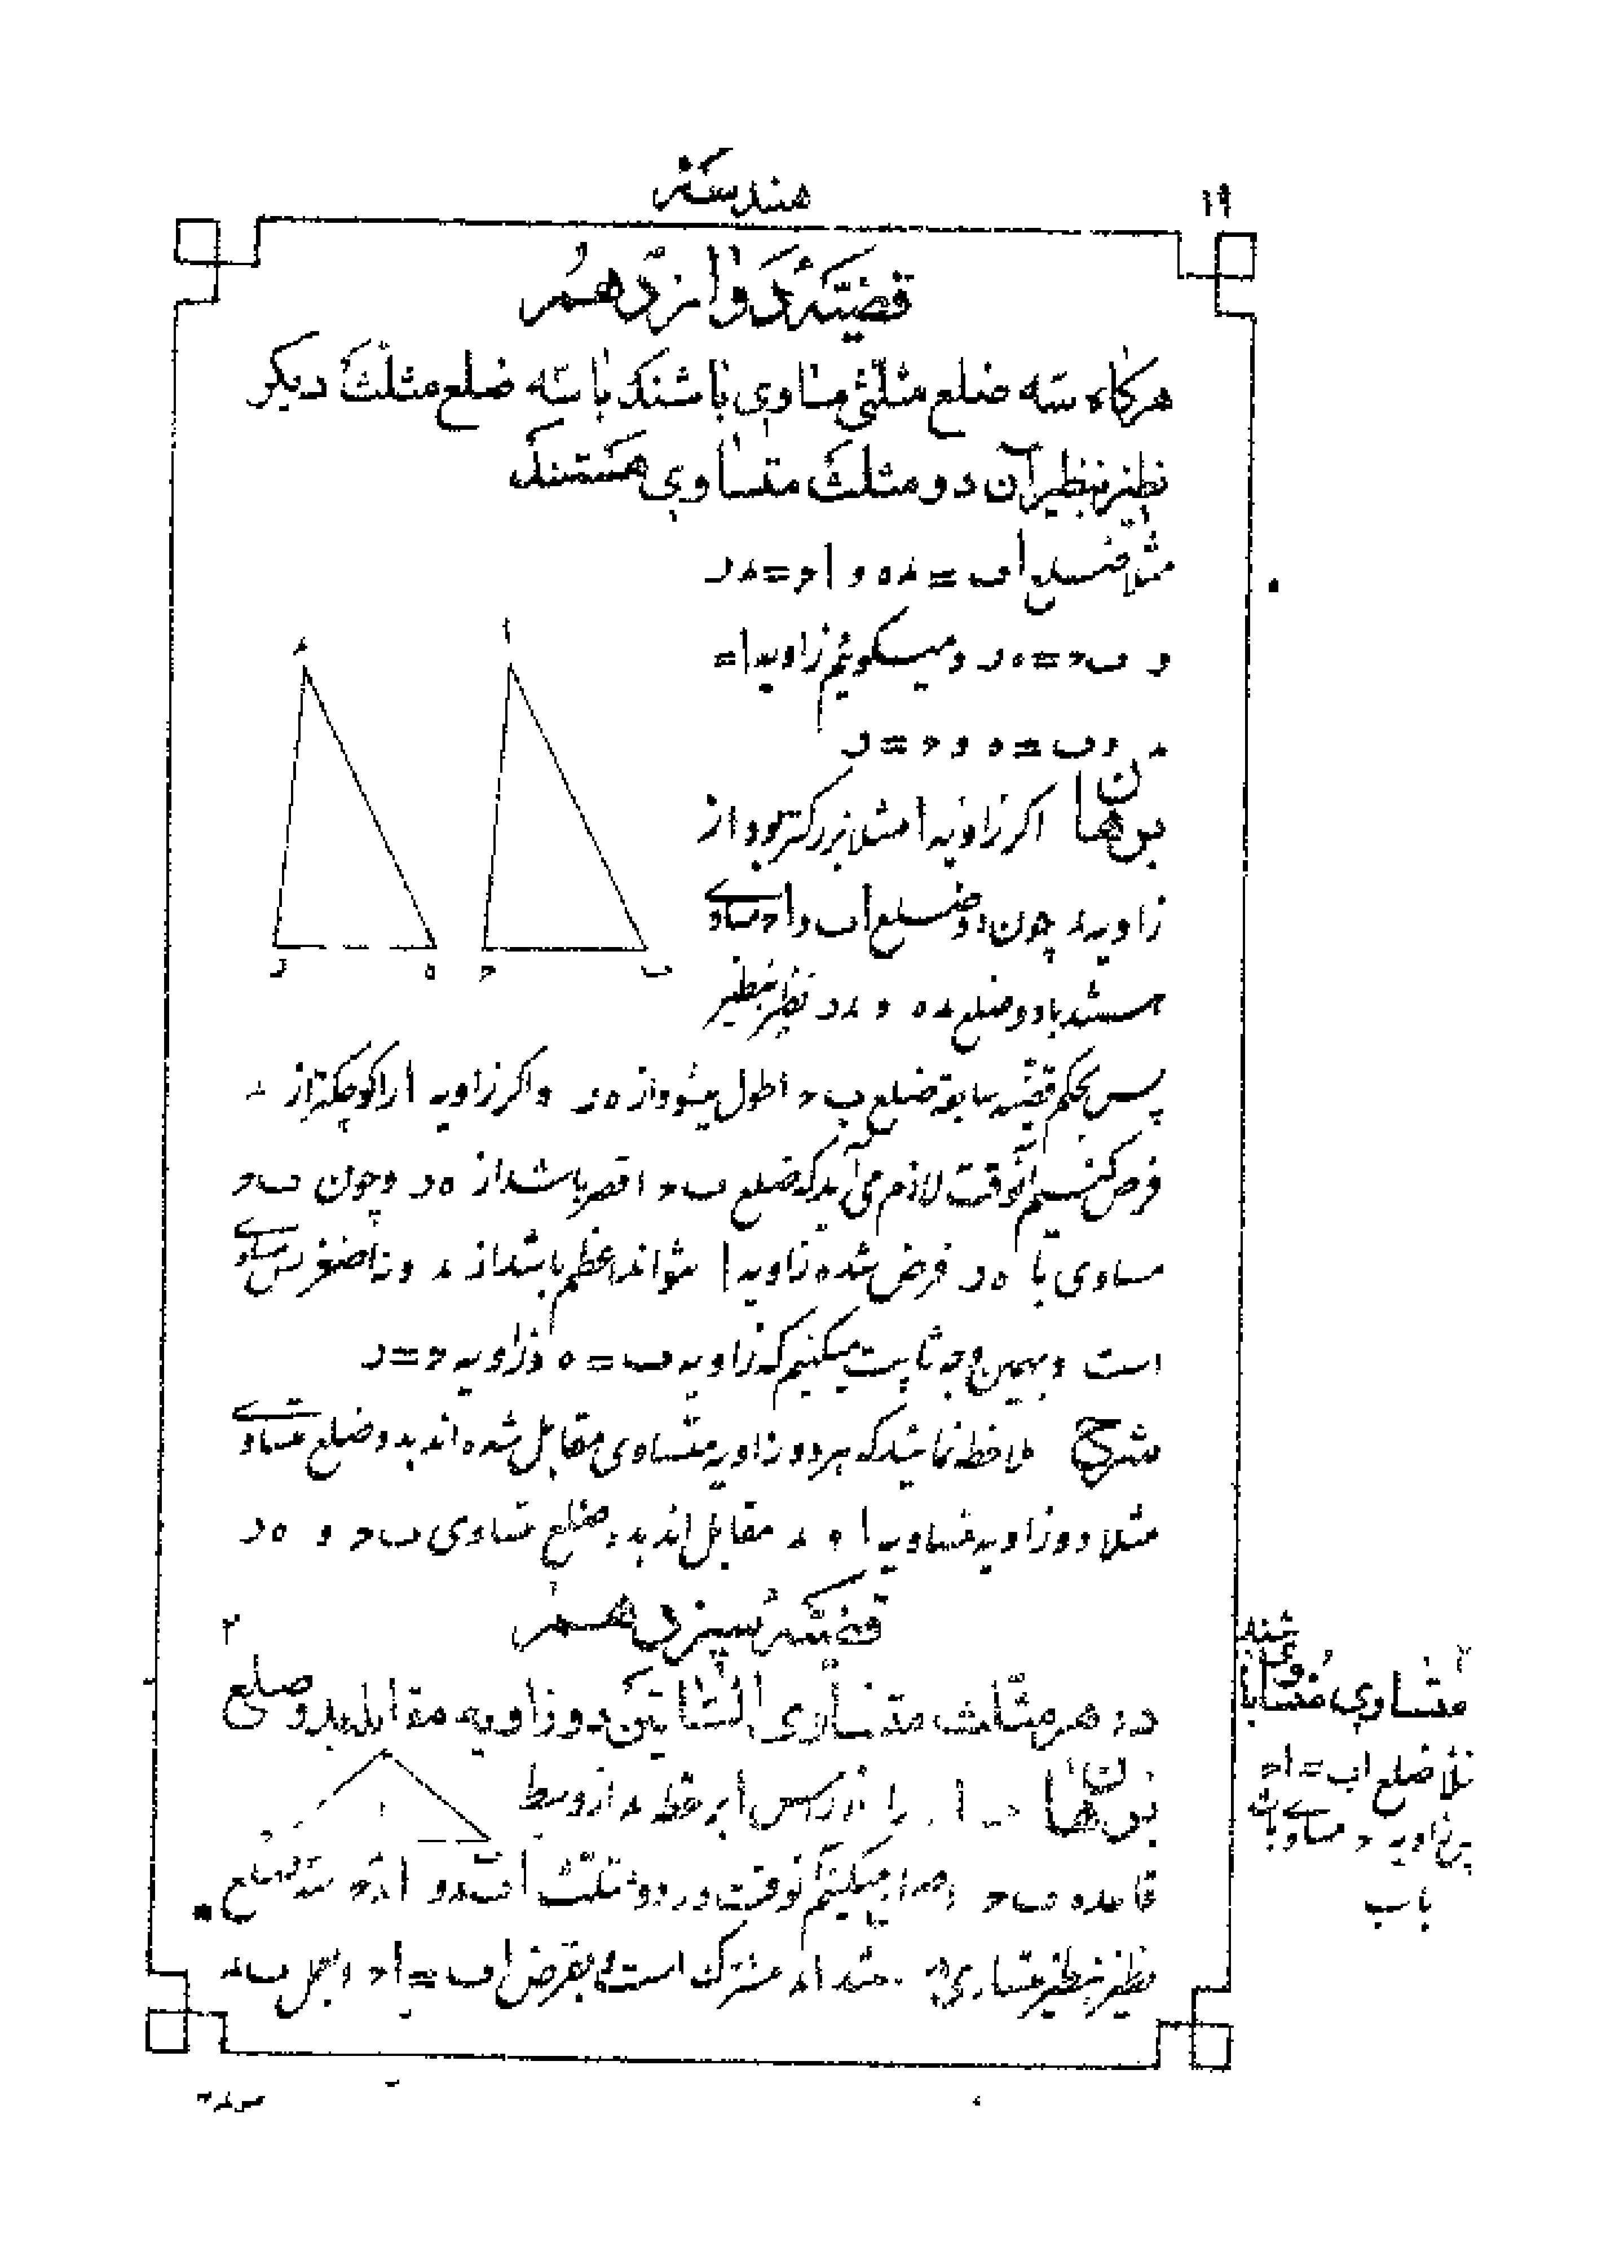 ۱۹
هندسه
قضیّهٔ دوازدهم
هرکاه سه ضلع مثلّثی مساوی باشند با سه ضلع مثلّث دیکر
نظیر بنظیر آن دو مثلث متساوی هستند
مثلاً ضلع اب = ءه و اح = ءر
و ب‌ح = ه‌ر و میکوئیم زاویه ا =
ء و ب = ه و ح = ر
برهان اکر زاویه ا مثلا بزرکتر بود از
زاویه ء چون دو ضلع اب و اح مساوی
هستند با دو ضلع ءه و ءر نظیر بنظیر
پس بحکم قضیّه سابقه ضلع ب‌ح اطول میشود از ه‌ر و اکر زاویه ا را کوچکتر از ء
فرض کنیم آنوقت لازم می‌آید که ضلع ب‌ح اقصر باشد از ه‌ر و چون ب‌ح
مساوی با ه‌ر فرض شده زاویه ا نتواند اعظم باشد از ء و نه اصغر پس مساوی
است و بهمین وجه ثابت میکنیم که زاویه ب = ه و زاویه ح = ر
شرح ملاحظه نمائید که هر دو زاویه متساوی مقابل شده‌اند بدو ضلع متساوی
مثلا دو زاویه متساویه ا و ء مقابل‌اند بدو ضلع متساوی ب‌ح و ه‌ر
قضیّهٔ سیزدهم
در هر مثلّث متساوی السّاقین دو زاویه مقابله بدو ضلع
متساوی متساوی باشند
مثلا ضلع اب = اح
پس زاویه ح مساوی باشد
با ب
برهان را از رأس ا بر نقطه ء از وسط
قاعده ب‌ح وصل میکنیم آنوقت در دو مثلّث ابء و اءح سه ضلع
نظیر بنظیر متساوی‌اند اء مشترک است و بفرض اب = اح و بعمل بء